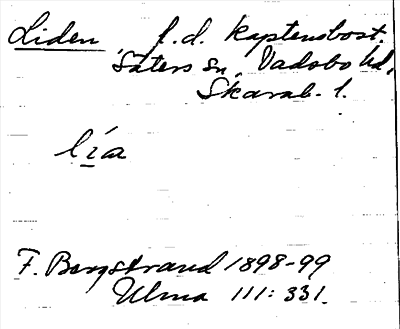 Liden f.d. kaptensbost.
Säters sn, Vadsbo hd,
Skarab. l.
lia
F. Bergstrand 1898-99
Ulma 111:331.